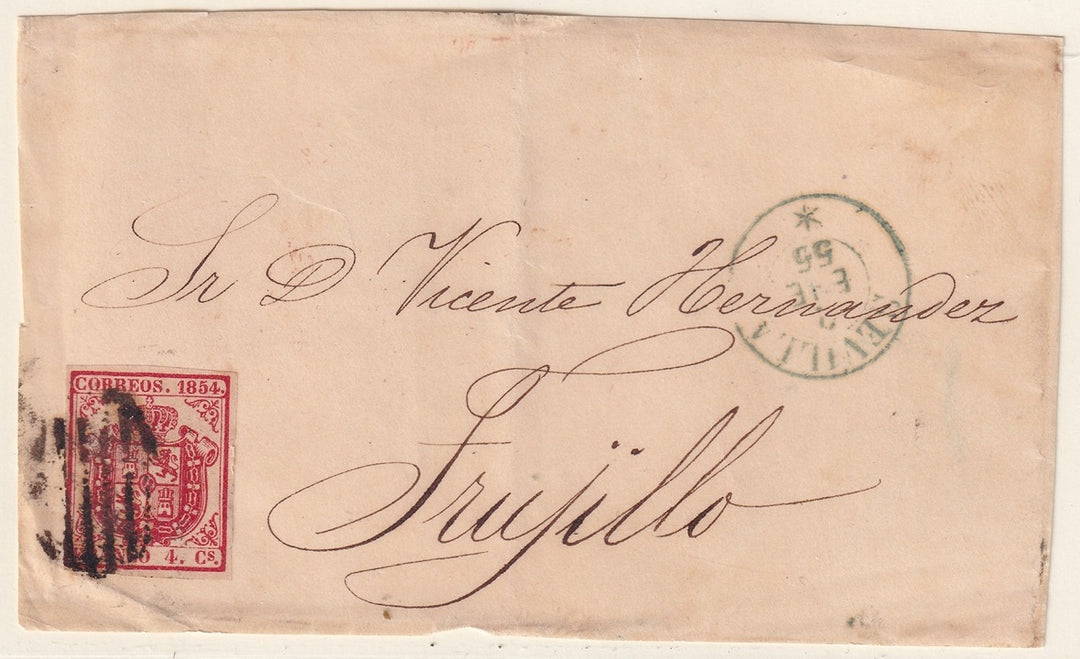 Sr D Vicente Hernandez
Trujillo
CORREOS. 1854.
4. Cs.
SEVILLA
ENE
55